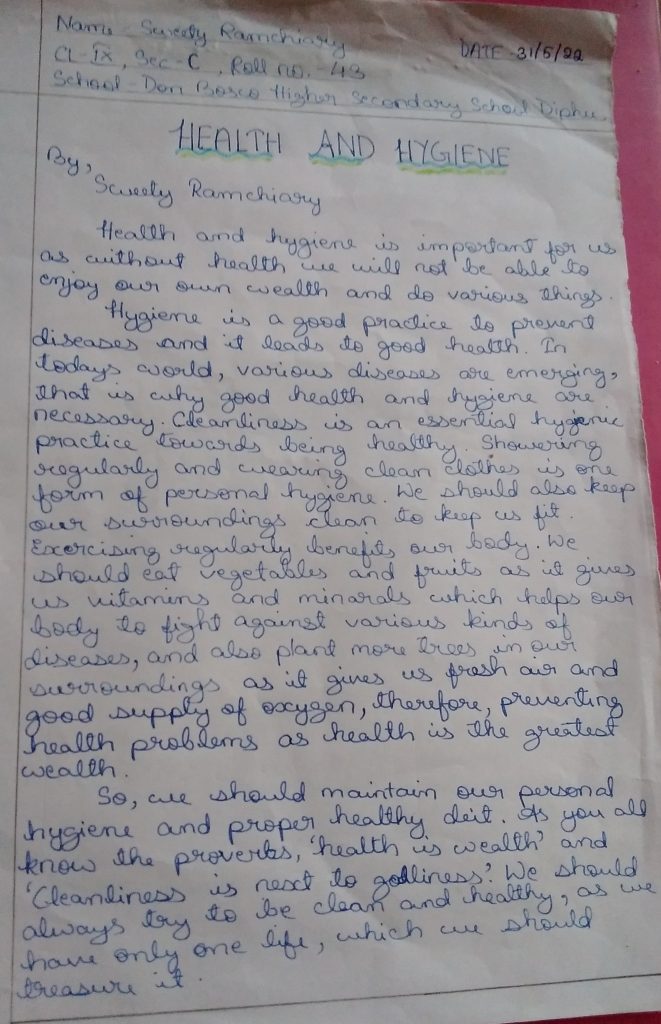 Name - Sweety Ramchiary
DATE - 31/5/22
Cl - IX, Sec - C, Roll no. - 43
School - Don Bosco Higher Secondary School Diphu
HEALTH AND HYGIENE
By,
Sweety Ramchiary
Health and hygiene is important for us
as without health we will not be able to
enjoy our own wealth and do various things.
Hygiene is a good practice to prevent
diseases and it leads to good health. In
todays world, various diseases are emerging,
that is why good health and hygiene are
necessary. Cleanliness is an essential hygienic
practice towards being healthy. Showering
regularly and wearing clean clothes is one
form of personal hygiene. We should also keep
our surroundings clean to keep us fit.
Exercising regularly benefits our body. We
should eat vegetables and fruits as it gives
us vitamins and minarals which helps our
body to fight against various kinds of
diseases, and also plant more trees in our
surroundings as it gives us fresh air and
good supply of oxygen, therefore, preventing
health problems as health is the greatest
wealth.
So, we should maintain our personal
hygiene and proper healthy deit. As you all
know the proverbs, 'health is wealth' and
'Cleanliness is next to godliness'. We should
always try to be clean and healthy, as we
have only one life, which we should
treasure it.